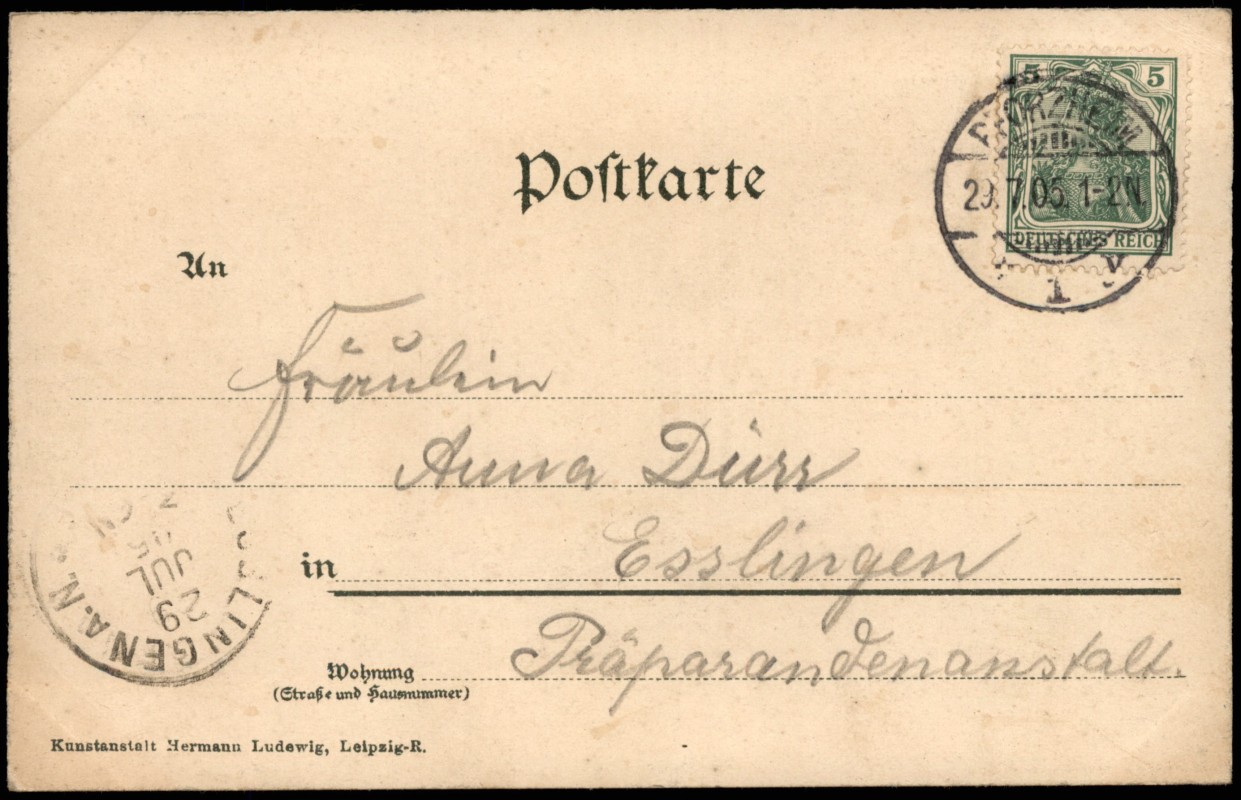 Postkarte
5 5
DEUTSCHES REICH
PFORZHEIM
29.7.05. 1-2N.
1
An
Fräulein
Anna Dürr
in Esslingen
Wohnung Präparandenanstalt.
(Straße und Hausnummer)
ESSLINGEN A.N.
29
JUL
05
Kunstanstalt Hermann Ludewig, Leipzig-R.